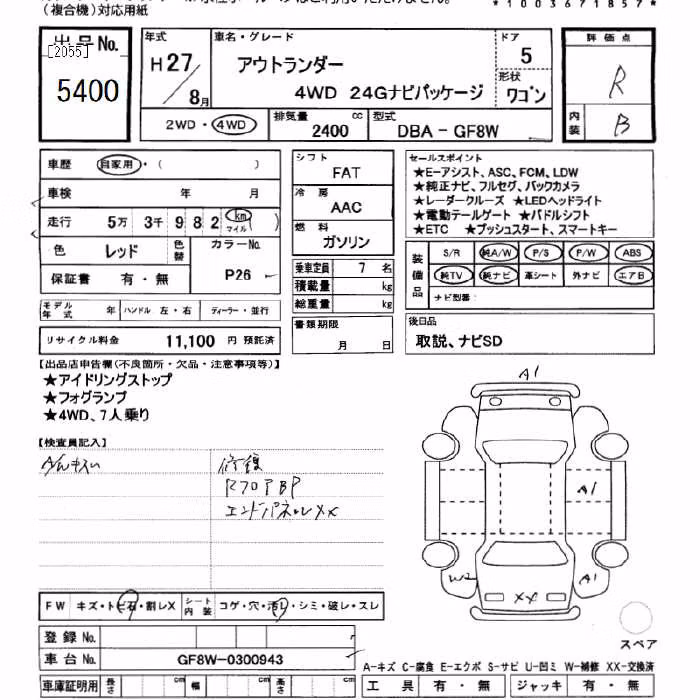 (複合機)対応用紙
*1003671857*
出品No.
[2055]
5400
年式
H27/8月
車名・グレード
アウトランダー
4WD 24Gナビパッケージ
ドア
5
形状
ワゴン
評価点
R
内装
B
2WD・4WD
排気量
2400 cc
型式
DBA - GF8W
車歴 自家用・( )
車検 年 月
走行 5万 3千 9 8 2 km マイル
色 レッド
色替
カラーNo.
P26
保証書 有・無
モデル年式 年
ハンドル 左・右
ディーラー・並行
リサイクル料金 11,100 円 預託済
シフト
FAT
冷房
AAC
燃料
ガソリン
乗車定員 7 名
積載量 kg
総重量 kg
書類期限
月 日
セールスポイント
★E-アシスト、ASC、FCM、LDW
★純正ナビ、フルセグ、バックカメラ
★レーダークルーズ ★LEDヘッドライト
★電動テールゲート ★パドルシフト
★ETC ★プッシュスタート、スマートキー
装備品
S/R 純A/W P/S P/W ABS
純TV 純ナビ 革シート 外ナビ エアB
ナビ型番:
後日品
取説、ナビSD
【出品店申告欄(不良箇所・欠品・注意事項等)】
★アイドリングストップ
★フォグランプ
★4WD、7人乗り
【検査員記入】
修復
エンドパネルXX
A1
A1
A1
W2
XX
スペア
FW キズ・トビ石・割レX
シート内装
コゲ・穴・汚レ・シミ・破レ・スレ
登録No.
車台No. GF8W-0300943
車庫証明用 長さ cm 幅 cm 高さ cm
A-キズ C-腐食 E-エクボ S-サビ U-凹ミ W-補修 XX-交換済
工具 有・無 ジャッキ 有・無